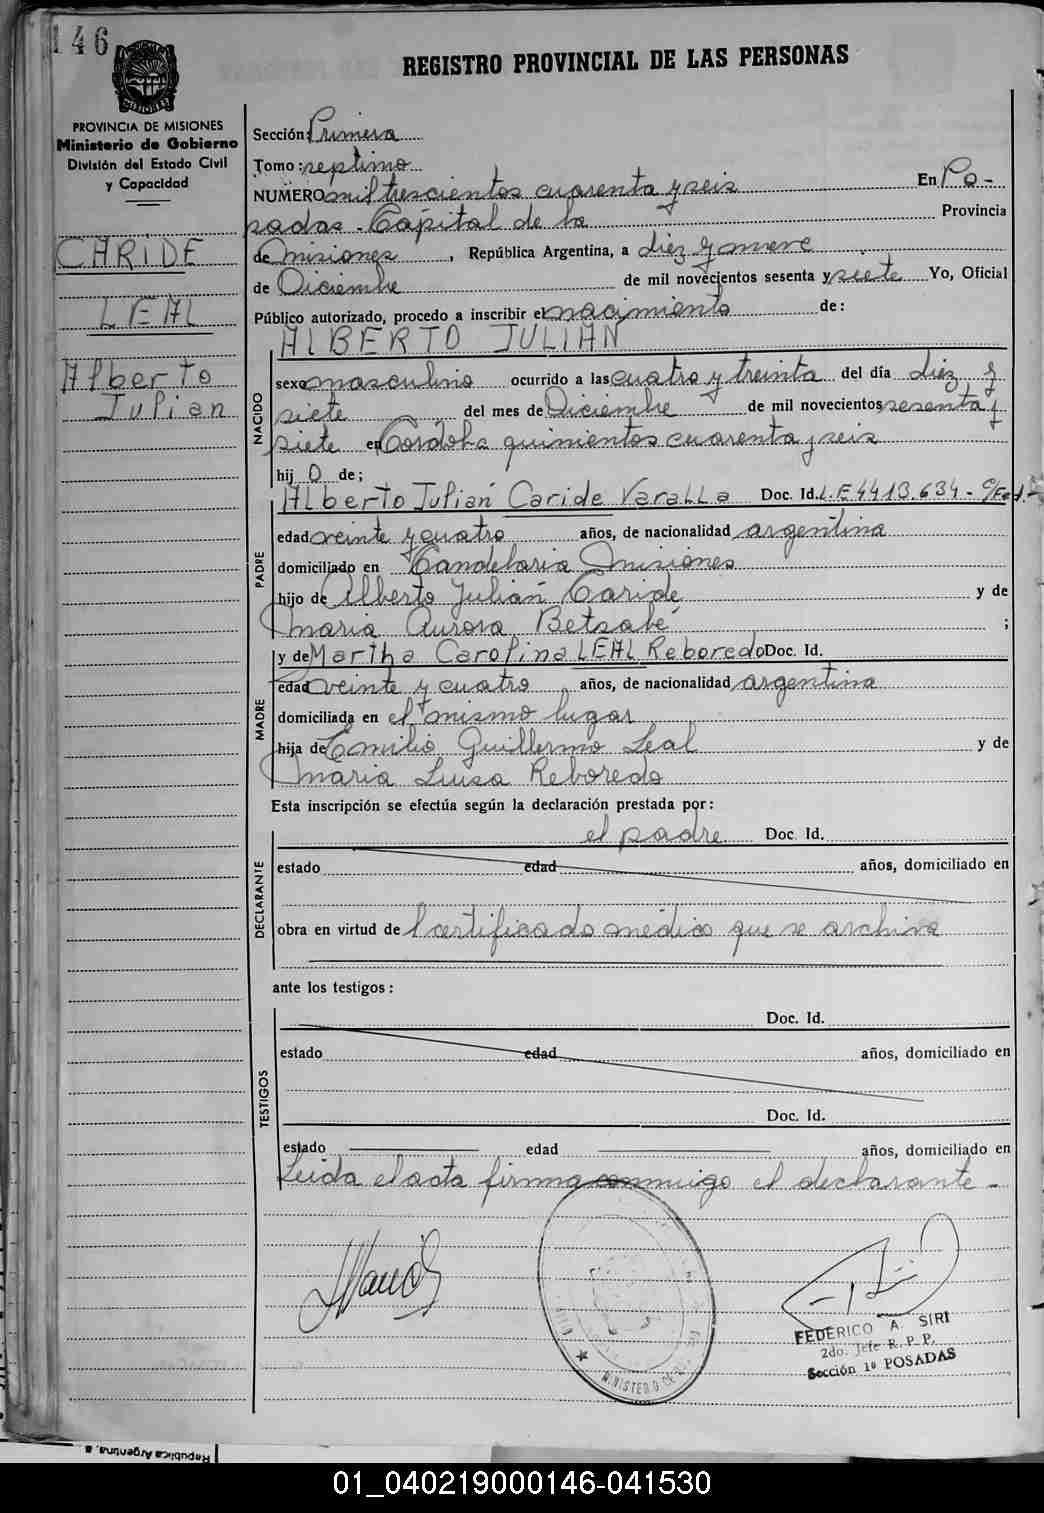 146
REGISTRO PROVINCIAL DE LAS PERSONAS
PROVINCIA DE MISIONES
Ministerio de Gobierno
División del Estado Civil
y Capacidad
CARIDE
LEAL
Alberto
Julian
Sección: Primera
Tomo: septimo
NUMERO mil trescientos cuarenta y seis En Po-
sadas - Capital de la Provincia
de Misiones, República Argentina, a diez y nueve
de Diciembre de mil novecientos sesenta y siete Yo, Oficial
Público autorizado, procedo a inscribir el nacimiento de:
ALBERTO JULIAN
NACIDO
sexo masculino ocurrido a las cuatro y treinta del día diez y
siete del mes de Diciembre de mil novecientos sesenta y
siete en Cordoba quinientos cuarenta y seis
hij o de;
PADRE
Alberto Julián Caride Varalla Doc. Id. L.E 4413.634 -
edad veinte y cuatro años, de nacionalidad argentina
domiciliado en Candelaria Misiones
hijo de Alberto Julián Caride y de
Maria Aurora Betsabé ;
MADRE
y de Martha Carolina LEAL Reboredo Doc. Id.
edad veinte y cuatro años, de nacionalidad argentina
domiciliada en el mismo lugar
hija de Emilio Guillermo Leal y de
Maria Luisa Reboredo
Esta inscripción se efectúa según la declaración prestada por:
DECLARANTE
el padre Doc. Id.
estado edad años, domiciliado en
obra en virtud de l certificado médico que se archiva
ante los testigos:
TESTIGOS
Doc. Id.
estado edad años, domiciliado en
Doc. Id.
estado edad años, domiciliado en
Leida el acta firma conmigo el declarante -
MINISTERIO DE
FEDERICO A. SIRI
2do. Jefe R. P. P.
Sección 1º POSADAS
República Argentina, a
01_040219000146-041530